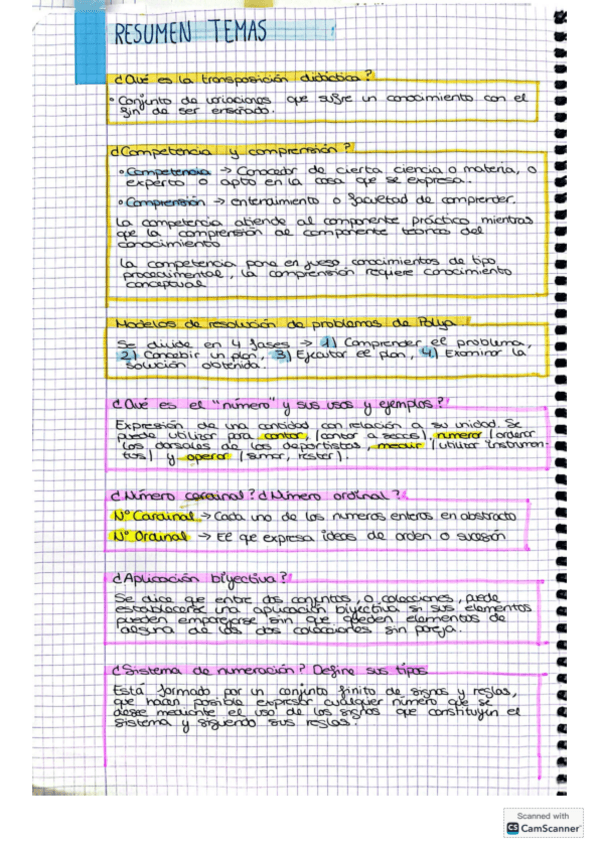 RESUMEN TEMAS
¿Qué es la transposición didáctica?
• Conjunto de variaciones que sufre un conocimiento con el
fin de ser enseñado.
¿Competencia y comprensión?
• Competencia → Conocedor de cierta ciencia o materia, o
experto o apto en la cosa que se expresa.
• Comprensión → entendimiento o facultad de comprender.
La competencia atiende al componente práctico mientras
que la comprensión al componente teórico del
conocimiento
La competencia pone en juego conocimientos de tipo
procedimental, la comprensión requiere conocimiento
conceptual
Modelos de resolución de problemas de Polya.
Se divide en 4 fases → 1) Comprender el problema,
2) Concebir un plan, 3) Ejecutar el plan, 4) Examinar la
solución obtenida.
¿Qué es el "número" y sus usos y ejemplos?
Expresión de una cantidad con relación a su unidad. Se
puede utilizar para contar, (contar a secas), numerar (ordenar
los dorsales de los deportistas, medir (utilizar instrumen-
tos) y operar (sumar, rester).
¿Número cardinal? ¿Número ordinal?
Nº Cardinal → Cada uno de los numeros enteros en abstracto
Nº Ordinal → El que expresa ideas de orden o sucesión
¿Aplicación biyectiva?
Se dice que entre dos conjuntos, o colecciones, puede
establecerse una aplicación biyectiva si sus elementos
pueden emparejarse sin que queden elementos de
alguna de las dos colecciones sin pareja.
¿Sistema de numeración? Define sus tipos
Está formado por un conjunto finito de signos y reglas,
que hacen posible expresar cualquier número que se
desee mediante el uso de los signos que constituyen el
sistema y siguiendo sus reglas.
Scanned with
CS CamScanner